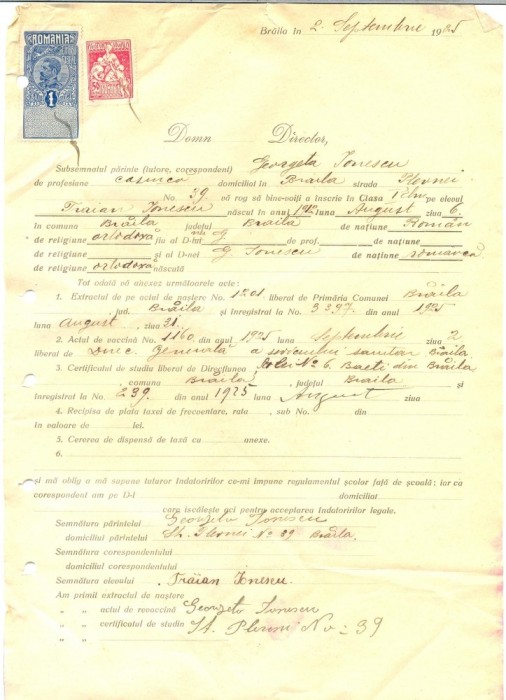 Brăila în 2 Septembrie 1925
ROMANIA
1
Domn Director,
Subsemnatul părinte (tutore, corespondent) Georgeta Ionescu
de profesiune casnica domiciliat în Braila strada Plevnei
No. 39 vă rog să bine-voiți a înscrie în Clasa pe elevul
Traian Ionescu născut în anul 1912 luna August ziua 6
în comuna Brăila județul Braila de națiune Român
de religiune ortodoxă fiu al D-lui G de prof. de națiune
de religiune și al D-nei G Ionescu de națiune romancă
de religiune ortodoxă născută
Tot odată vă anexez următoarele acte:
1. Extractul de pe actul de naștere No. 1201 liberat de Primăria Comunei Brăila
jud. Brăila și înregistrat la No. 3397 din anul 1925
luna August ziua 31
2. Actul de vaccină No. 1160 din anul 1925 luna Septembrie ziua 2
liberat de Direc Generală a serviciului sanitar Brăila
3. Certificatul de studiu liberat de Direcțiunea No 6 Baeti din Brăila
comuna Brăila județul Braila și
înregistrat la No. 239 din anul 1925 luna August ziua
4. Recipisa de plata taxei de frecventare, rata sub No. din
în valoare de lei.
5. Cererea de dispensă de taxă cu anexe.
6.
și mă oblig a mă supune tuturor îndatoririlor ce-mi impune regulamentul școlar față de școală; iar ca
corespondent am pe D-l domiciliat
care iscălește aci pentru acceptarea îndatoririlor legale.
Semnătura părintelui Georgeta Ionescu
domiciliul părintelui St. Plevnei No 39 Brăila
Semnătura corespondentului
domiciliul corespondentului
Semnătura elevului Trăian Ionescu.
Am primit extractul de naștere
" " actul de revaccină Georgeta Ionescu
" " certificatul de studiu St. Plevnei No 39
" "